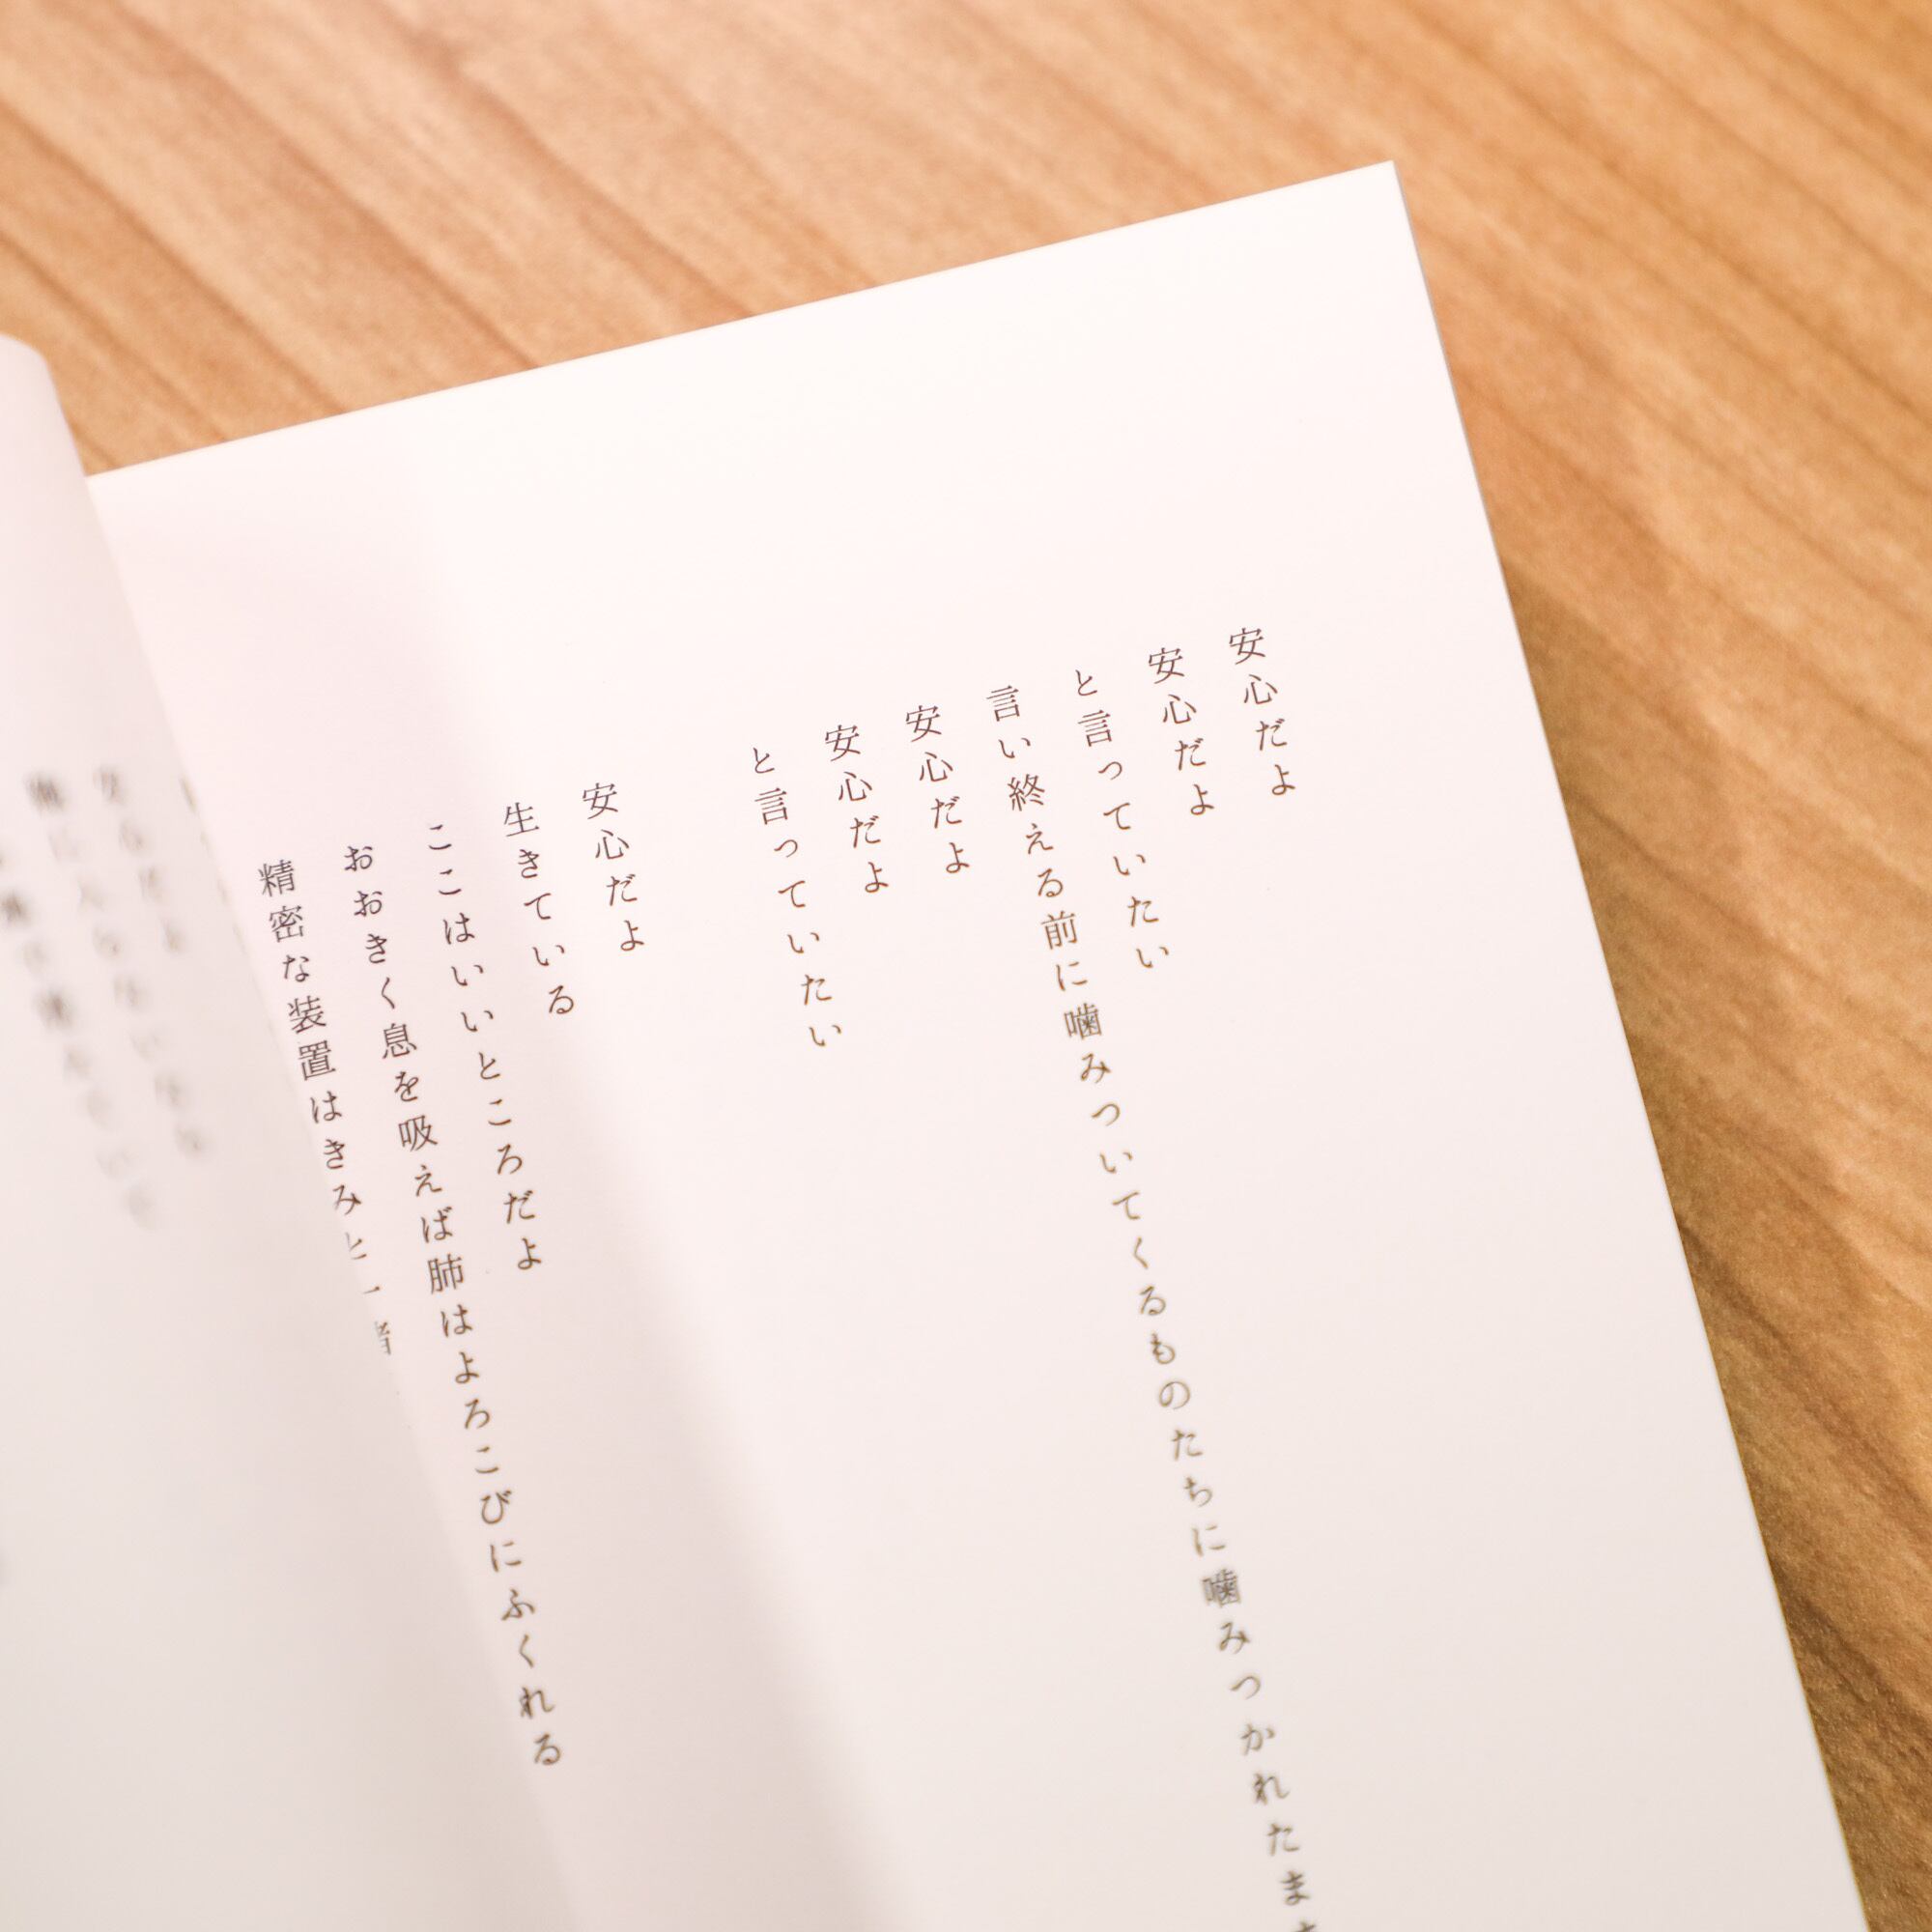 安心だよ
安心だよ
と言っていたい
言い終える前に噛みついてくるものたちに噛みつかれたま
安心だよ
安心だよ
と言っていたい
安心だよ
生きている
ここはいいところだよ
おおきく息を吸えば肺はよろこびにふくれる
精密な装置はきみと一緒